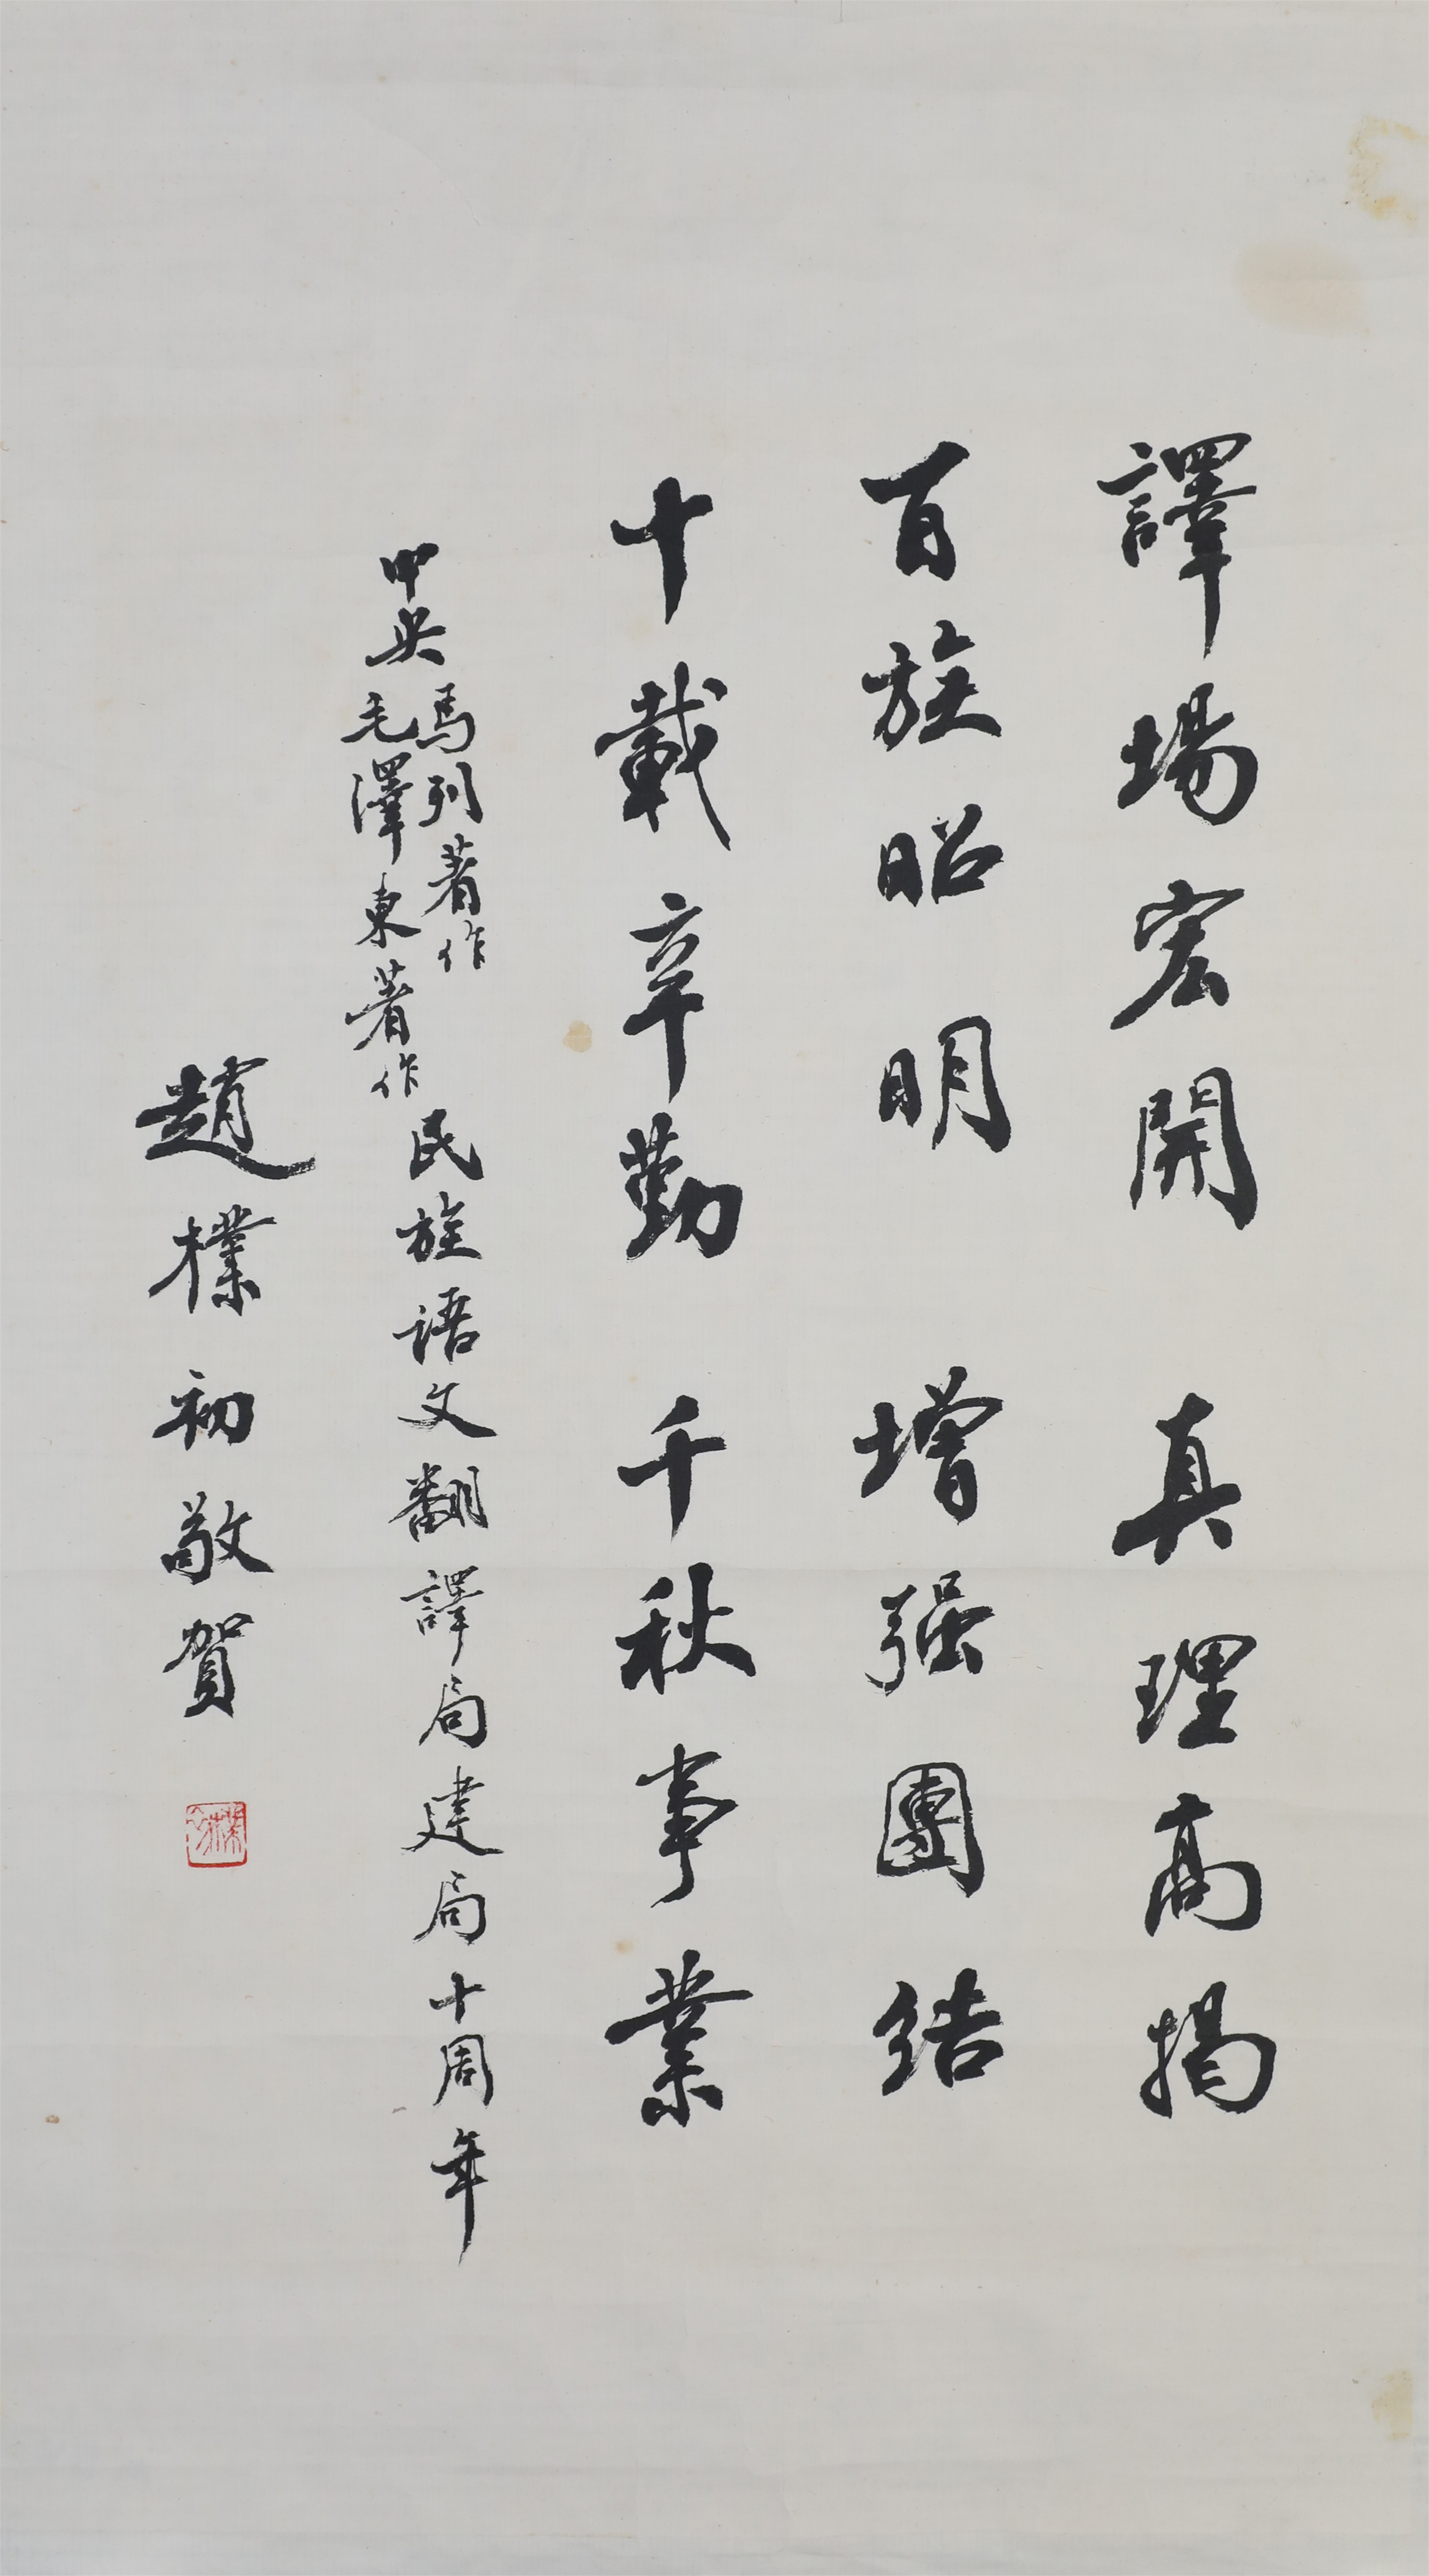 譯場宏開 真理高揭
百族昭明 增强團結
十載辛勤 千秋事業
中央馬列著作毛澤東著作民族语文翻譯局建局十周年
趙樸初敬賀